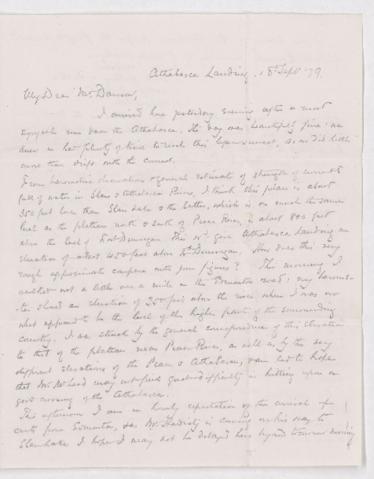 Athabasca Landing, 18 Sept '79
My Dear Mr Dawson,
I arrived here yesterday evening after a most
enjoyable run down the Athabasca. The day was beautifully fine
plenty of time to reach this as we did little
more than drift with the current.
From barometric observations & general estimate of strength of current &
fall of water in Slave & Athabasca Rivers, I think this place is about
350 feet lower than Slave Lake & the latter, which is on much the same
level as the plateau north & south of Peace River, is about 800 feet
above the level of Fort Dunvegan. This wd give Athabasca Landing an
elevation of about 450 feet above Ft Dunvegan. How does this very
rough approximate compare with your figures? This morning I
walked not a little over a mile on the Edmonton road; my barome-
ter showed an elevation of 300 feet above the river when I was on
what appeared to be the level of the higher part of the surrounding
country. I am struck by the general correspondence of this elevation
to that of the plateau near Peace River, as well as by the very
different elevations of the Peace & Athabasca, & am led to hope
that Mr McLeod may not find great difficulty in hitting upon a
good crossing of the Athabasca.
This afternoon I am in hourly expectation of the arrival of
carts from Edmonton, as Mr is coming on his way to
Slave Lake. I hope I may not be delayed here beyond tomorrow morning